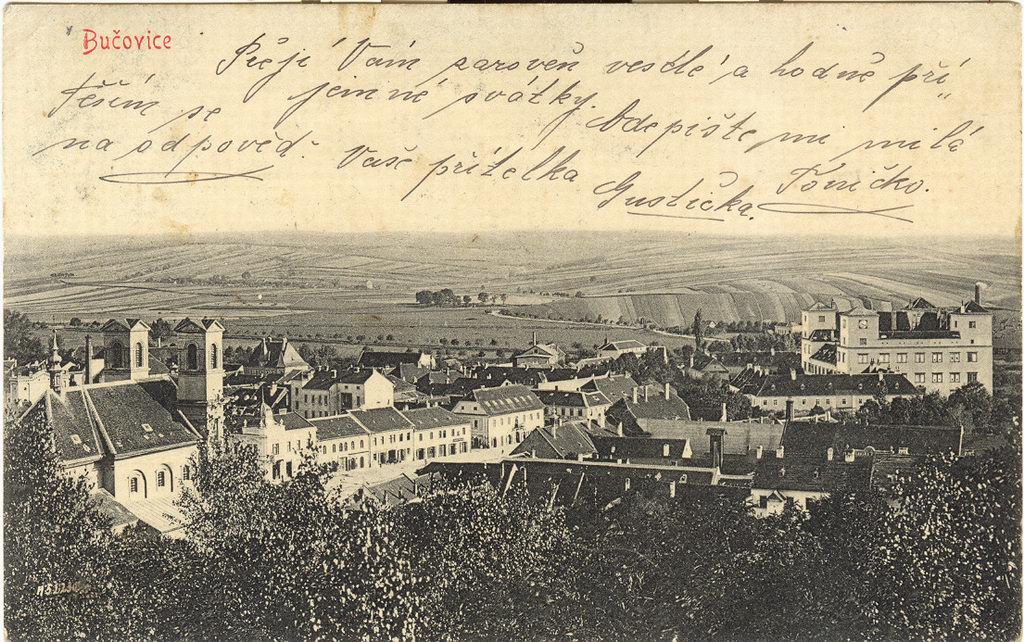 Bučovice
Přeji Vám zároveň veselé a hodně pří
jemné svátky.
Těším se
na odpověď.
Odepište mi milá
Toničko.
Vaše přítelka
Gustička.